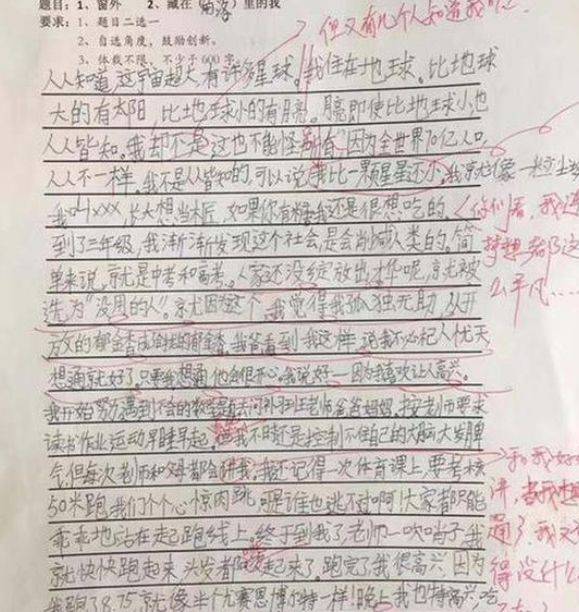 题目：1、窗外 2、藏在（角落）里的我
但又有几个人知道我呢？
要求：1、题目二选一
2、自选角度，鼓励创新。
3、体裁不限，不少于600字
人人知道，这宇宙超大，有许多星球。我住在地球。比地球
大的有太阳，比地球小的有月亮。月亮即使比地球小，也
人人皆知。我却不是，这也不能怪别有，因为全世界70亿人口，
人人不一样。我不是人皆知的，可以说我比一颗星星还小。我就像一粒尘埃
我叫xxx，长大想当木匠，如果你有糖我还是很想吃的。（你们看，我连
到了三年级，我渐渐发现这个社会，是会削减人类的。简
梦想都这
单来说，就是中考和高考。人家还没绽放出才华呢，就被
么平凡……
选为“没用的人”。就因为这个，我觉得我孤独无助，从开
放的郁金香成的郁金香。爸爸看到我这样，说我不必杞人忧天
想通就好了。只要我想通，他会很开心。我说好——因为我喜欢让人高兴。
我开始努力，遇到不会的数学题去问补习班老师爸爸妈妈，按老师要求
读书作业运动早睡早起。我不时还是控制不住自己的大脑大发脾
气，但每次老师和父母都会我。我还记得一次体育课上，要考核
50米跑，我们个个心惊肉跳，可是谁也逃不过啊！大家都只能
乖乖地站在起跑线上。终于到我了，老师一吹哨子，我
就快快跑起来，头发都起来了。跑完了我很高兴，因为
我跑了8.75，就像半个尤赛恩博尔特一样！晚上我也特高兴，吃